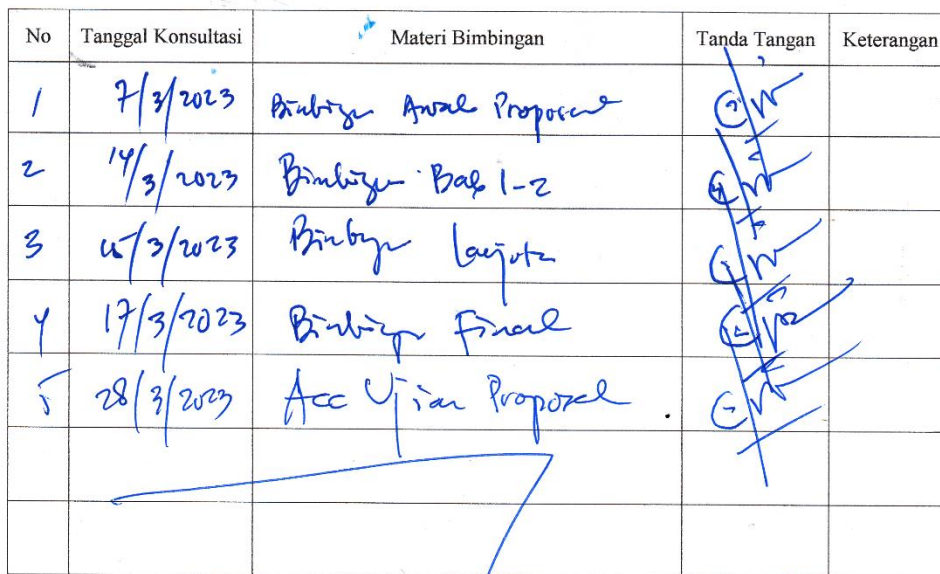 No Tanggal Konsultasi Materi Bimbingan Tanda Tangan Keterangan
1 7/3/2023 Bimbingan Awal Proposal
2 14/3/2023 Bimbingan Bab 1-2
3 15/3/2023 Bimbingan Lanjutan
4 17/3/2023 Bimbingan Final
5 28/3/2023 Acc Ujian Proposal